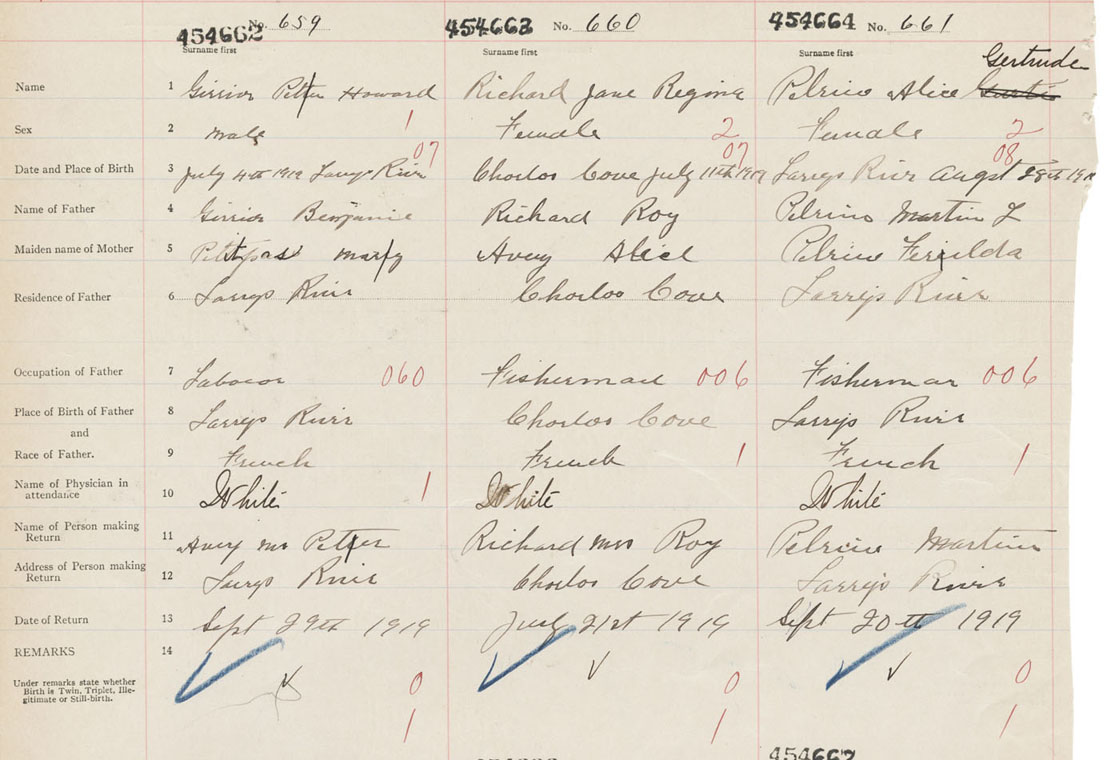 454662 No. 659 454663 No. 660 454664 No. 661
Surname first Surname first Surname first
Gertrude
Name 1 Girrior Peter Howard Richard Jane Regina Pelrine Alice
Sex 2 Male 1 Female 2 Female 2
07 07 08
Date and Place of Birth 3 July 4th 1919 Larrys River Charlos Cove July 11th 1919 Larrys River Augst 28th
Name of Father 4 Girrior Benjamin Richard Roy Pelrine Martin L
Maiden name of Mother 5 Petitpas Mary Avery Alice Pelrine
Residence of Father 6 Larrys River Charlos Cove Larrys River
Occupation of Father 7 Labocor 060 Fisherman 006 Fisherman 006
Place of Birth of Father 8 Larrys River Charlos Cove Larrys River
and
Race of Father. 9 French French 1 French 1
Name of Physician in
attendance 10 White 1 White White
Name of Person making
Return 11 Avery Mrs Peter Richard Mrs Roy Pelrine Martin
Address of Person making
Return 12 Larrys River Charlos Cove Larrys River
Date of Return 13 Sept 29th 1919 July 21st 1919 Sept 20th 1919
REMARKS 14
Under remarks state whether
Birth is Twin, Triplet, Ille-
gitimate or Still-birth.
0 0 0
1 1 1